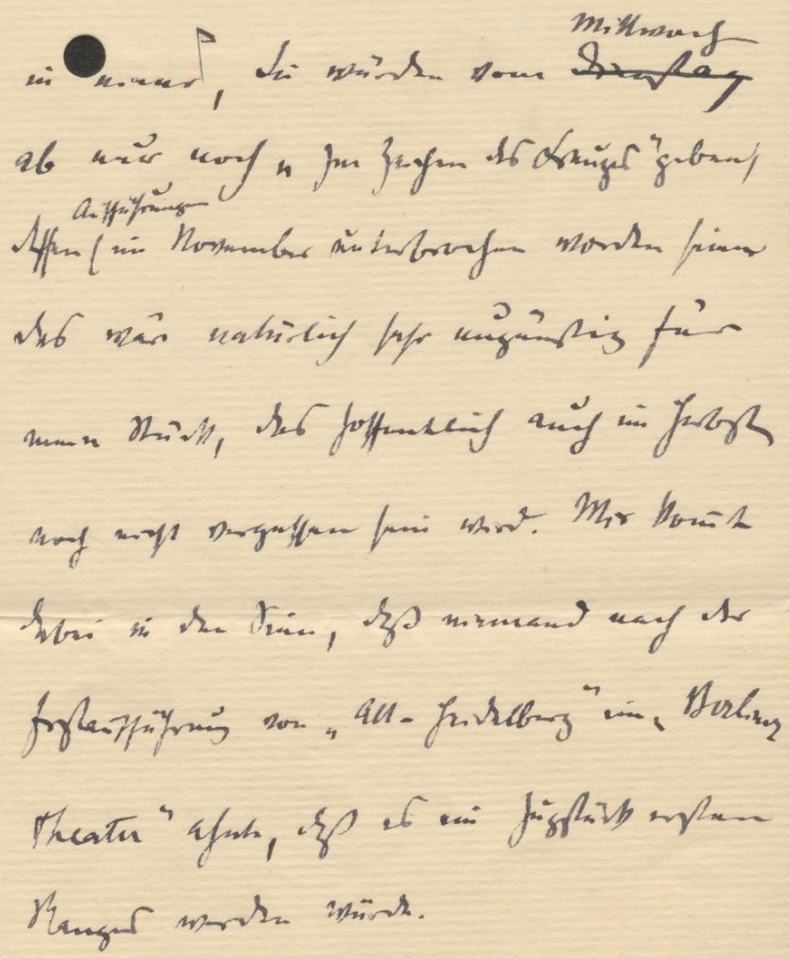 Mittwoch
in einer, Sie würden vom Dienstag
ab nur noch „Im Zeichen des Kreuzes" geben,
Aufführungen
dessen im November unterbrochen worden seien
das wär natürlich sehr ungünstig für
mein Stück, das hoffentlich auch im Herbst
noch nicht vergessen sein wird. Mir kommt
dabei in den Sinn, daß niemand nach der
Erstaufführung von „Alt-Heidelberg" im „Berliner
Theater" ahnte, daß es ein Zugstück ersten
Ranges werden würde.